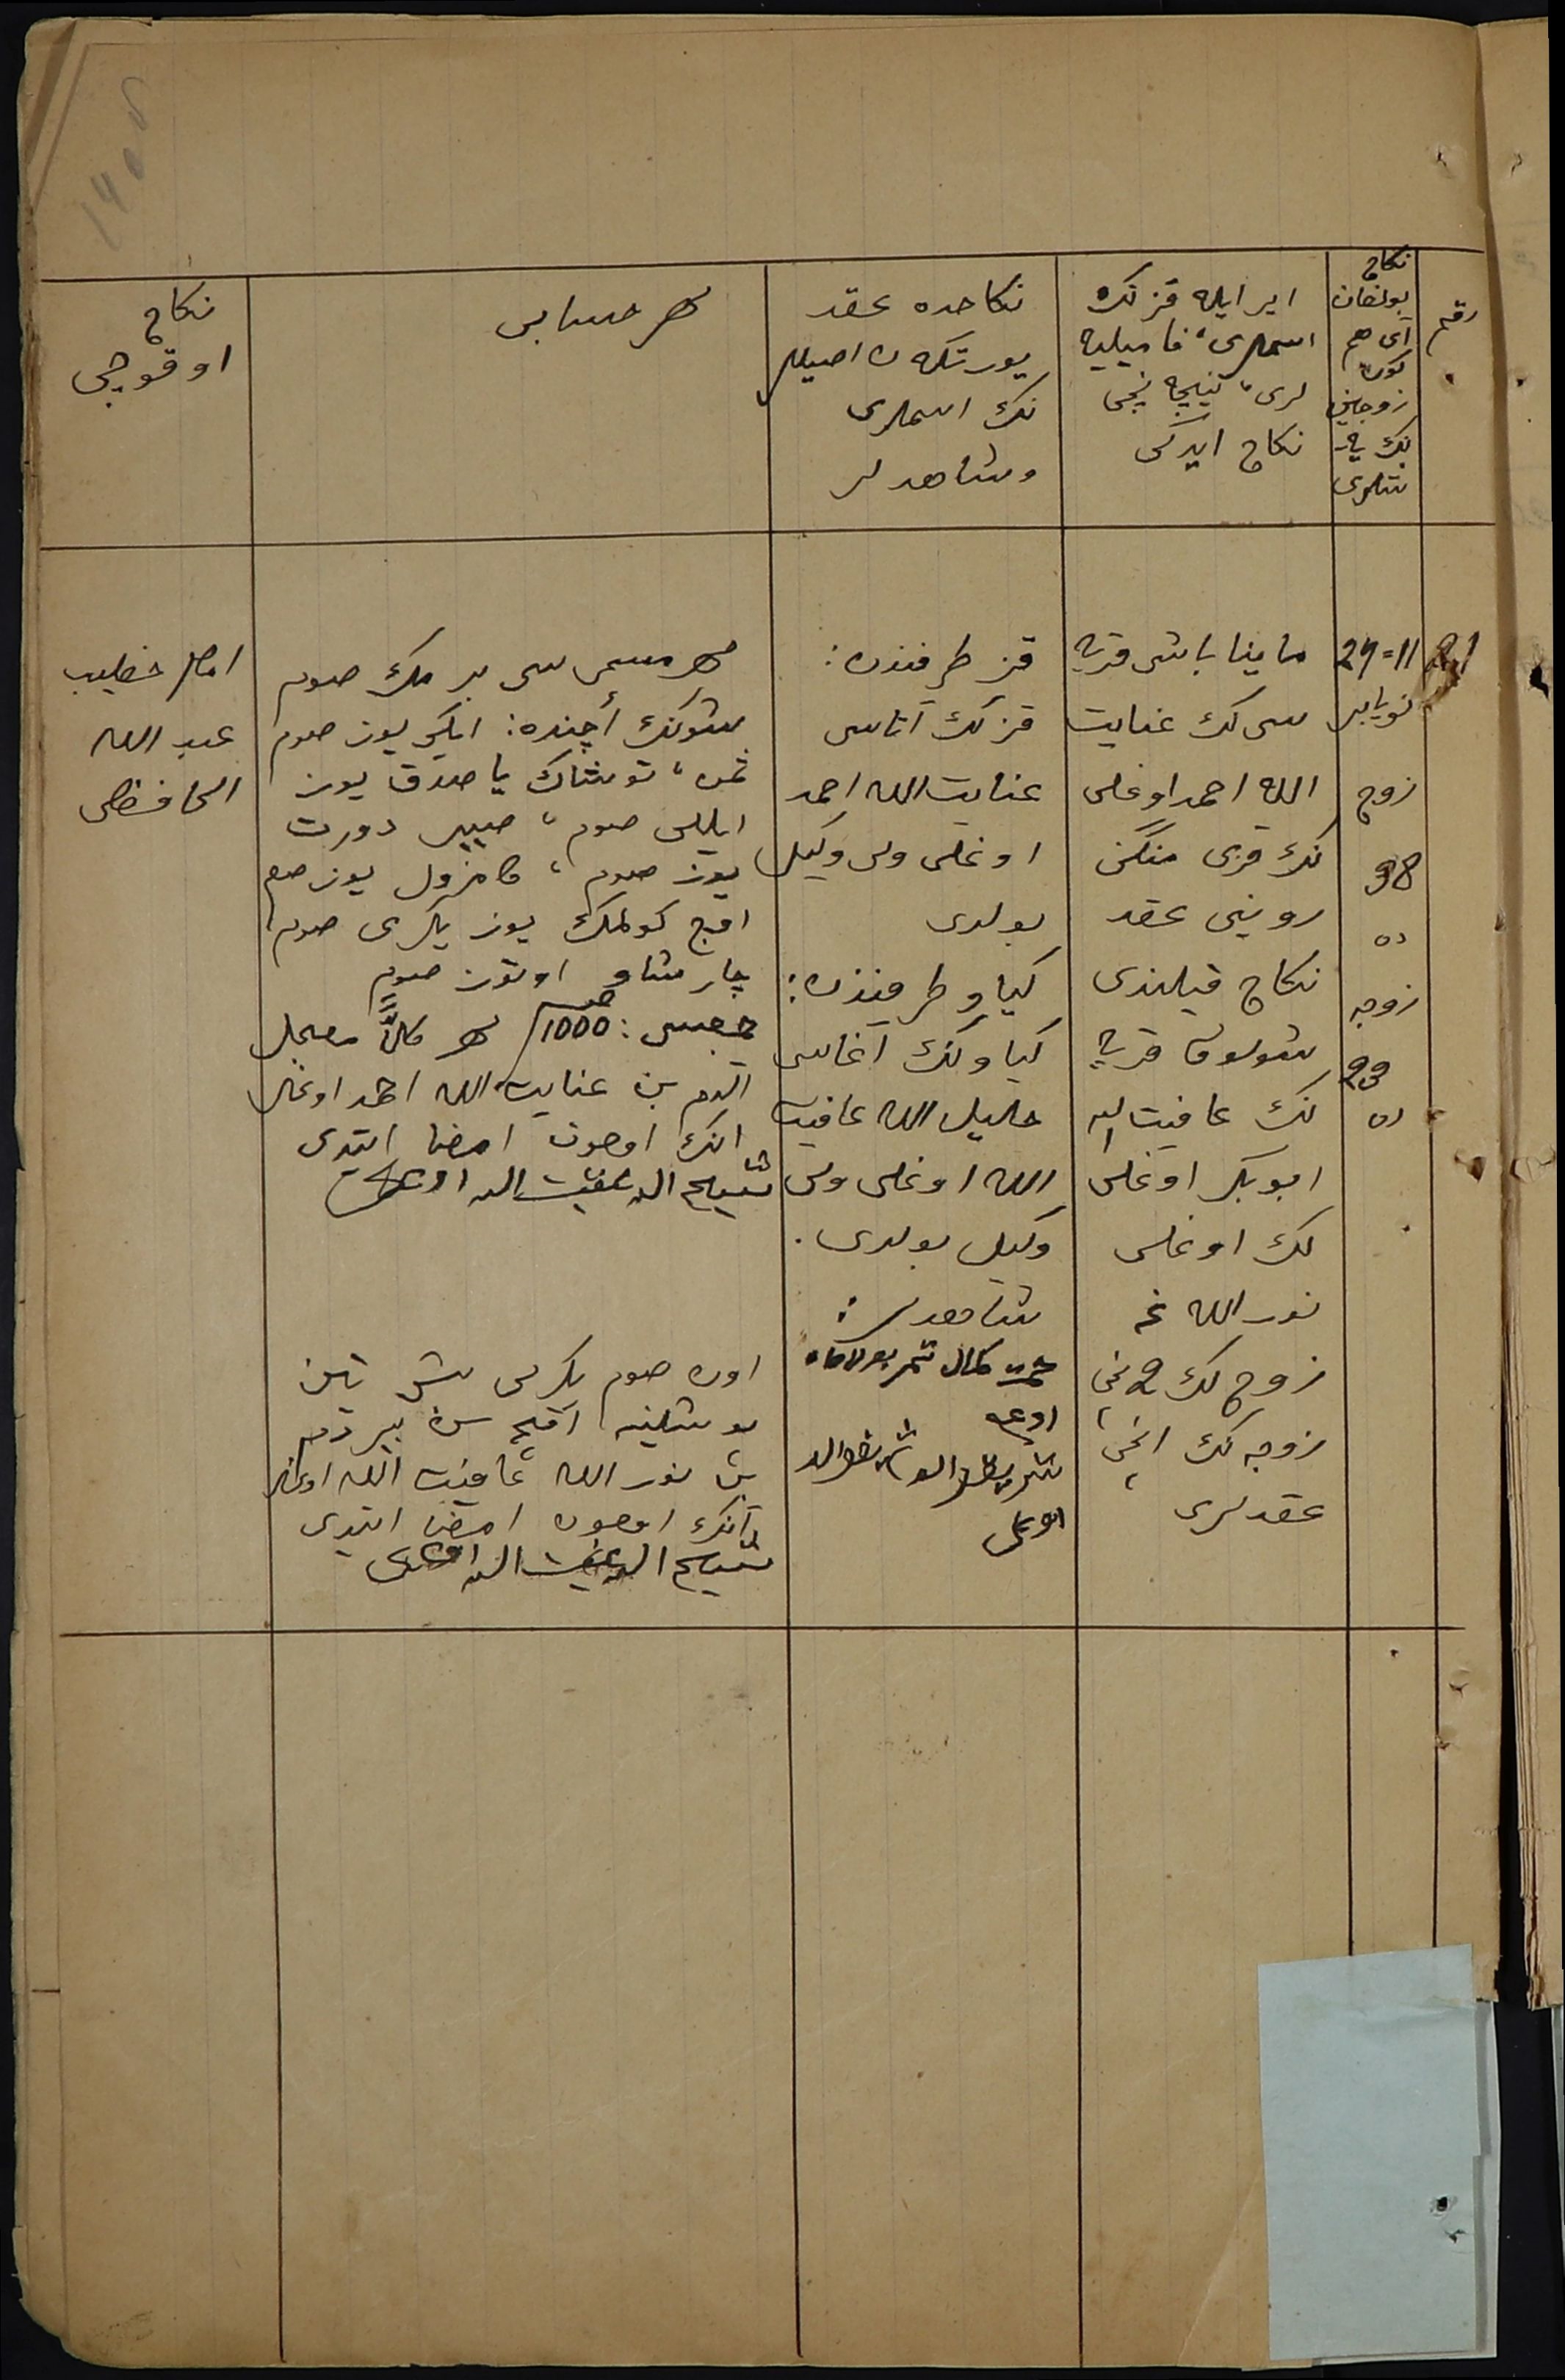 رقم
نكاح
بولغان
آى هم
كون،
زوجين
نك يا-
شلرى
اير ايله قزنك
اسملرى، فاميليه
لرى، نيچه نچى
نكاح ايدكى
نكاحده عقد
يورتكه ن اصيللر
نك اسملرى
و شاهدلر
مهر حسابى
نكاح
اوقوچى
21
11=27
نويابر
زوج
38
ده
زوجه
23
ده
ماينا باشى قريه
سى نك عنايت
الله احمد اوغلى
نك قزى
عقد
نكاح قيلندى
قريه
نك عافيت الله
ابوبكر اوغلى
نك اوغلى
نور الله غه
زوج نك 2 نچى
زوجه نك انچى،
عقدلرى
قز طرفندن:
قزنك آتاسى
عنايت الله احمد
اوغلى ولى وكيل
بولدى
كياو طرفندن:
كياونك آغاسى
خليل الله عافيت
الله اوغلى ولى
وكيل بولدى.
شاهدلر:
كمال
اوغلى
اوغلى
مهر مسمى سى بر مك صوم
شونك أچنده: ايكى يوز صوم
توشاك ياصدق يوز
ايللى صوم، دورت
يوز صوم، كامزول يوز صوم
اوچ كولمك يوز يكرمى صوم،
چارشاو اوتوز صوم
جمعسى: 1000 صوم مهر كلاً معجل
آلدم بن عنايت الله احمد اوغلى
انك اوچون امضا ايتدى
الله اوغلى
اون صوم يكرمى بش تين
آقچه سن بيردم
بن نور الله عافيت الله اوغلى
آنك اوچون امضا ايتدى
الله اوغلى
امام خطيب
عبد الله
الحافظى